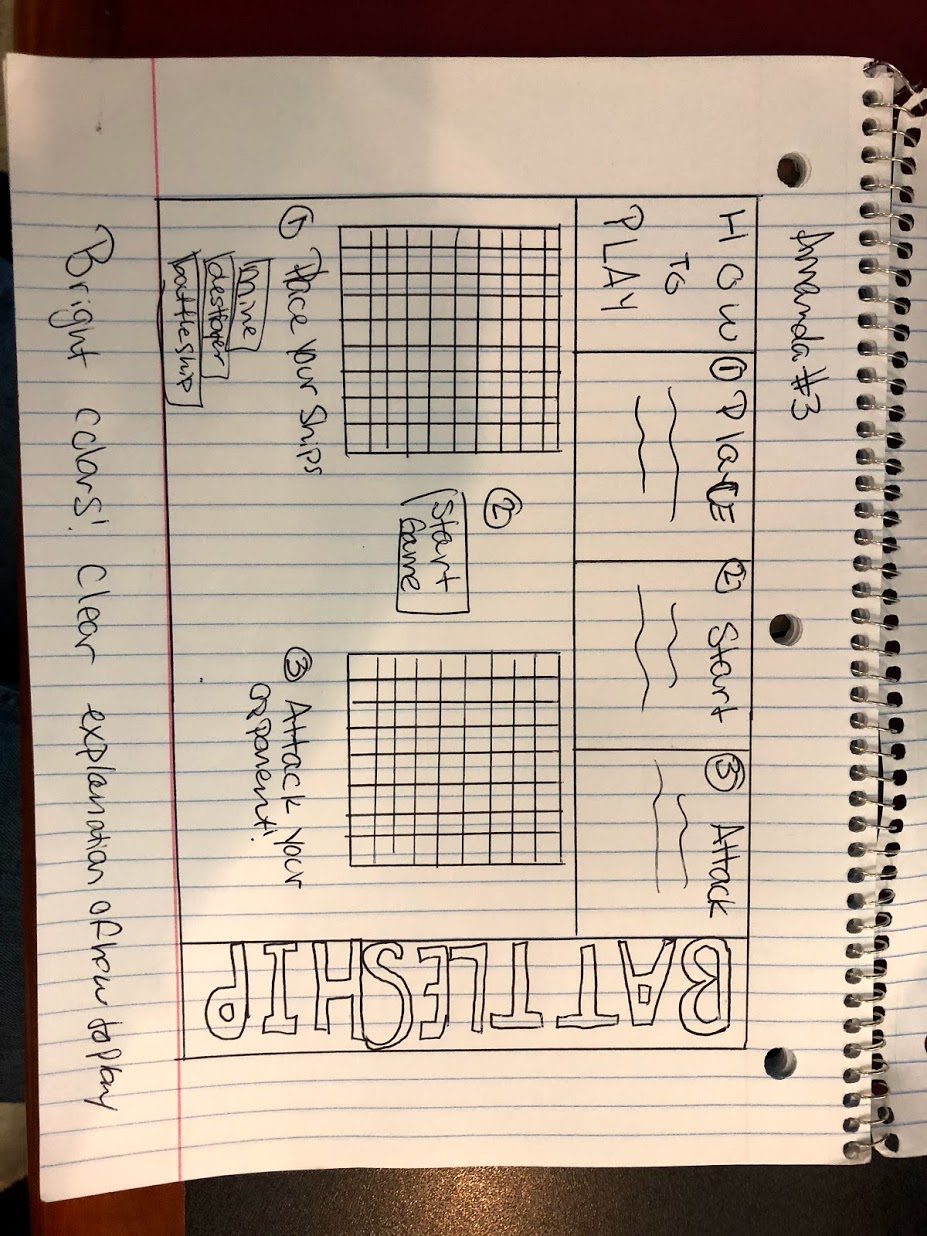 Amanda #3
HOW
TO
PLAY
① PlacE
② Start
③ Attack
BATTLESHIP
②
Start
Game
① Place your Ships
mine
destroyer
battleship
③ Attack your
opponent!
Bright colors! Clear explanation of how to play